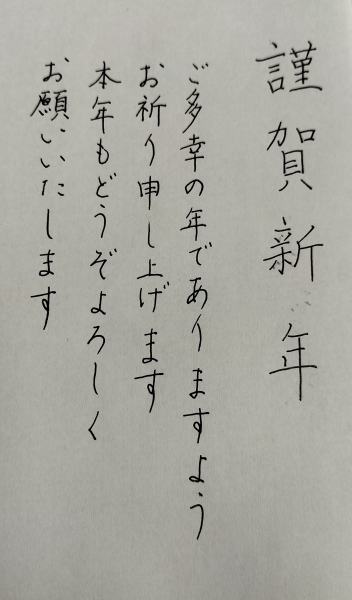 謹賀新年
ご多幸の年でありますよう
お祈り申し上げます
本年もどうぞよろしく
お願いいたします